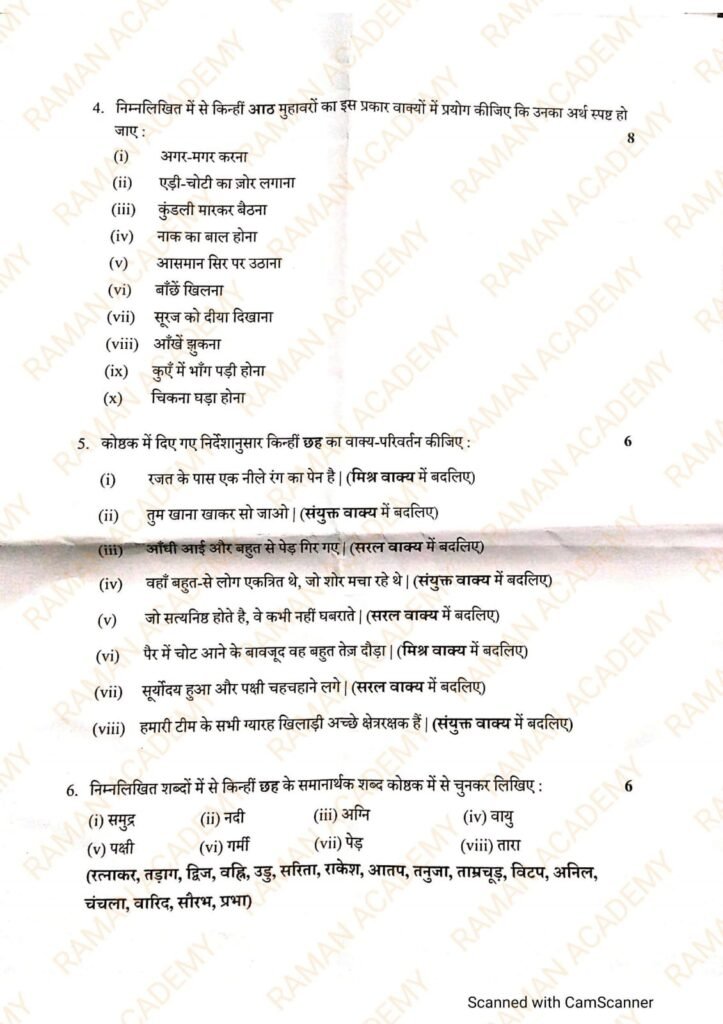 4. निम्नलिखित में से किन्हीं आठ मुहावरों का इस प्रकार वाक्यों में प्रयोग कीजिए कि उनका अर्थ स्पष्ट हो
जाए : 8
(i) अगर-मगर करना
(ii) एड़ी-चोटी का ज़ोर लगाना
(iii) कुंडली मारकर बैठना
(iv) नाक का बाल होना
(v) आसमान सिर पर उठाना
(vi) बाँछें खिलना
(vii) सूरज को दीया दिखाना
(viii) आँखें झुकना
(ix) कुएँ में भाँग पड़ी होना
(x) चिकना घड़ा होना
5. कोष्ठक में दिए गए निर्देशानुसार किन्हीं छह का वाक्य-परिवर्तन कीजिए : 6
(i) रजत के पास एक नीले रंग का पेन है | (मिश्र वाक्य में बदलिए)
(ii) तुम खाना खाकर सो जाओ | (संयुक्त वाक्य में बदलिए)
(iii) आँधी आई और बहुत से पेड़ गिर गए | (सरल वाक्य में बदलिए)
(iv) वहाँ बहुत-से लोग एकत्रित थे, जो शोर मचा रहे थे | (संयुक्त वाक्य में बदलिए)
(v) जो सत्यनिष्ठ होते है, वे कभी नहीं घबराते | (सरल वाक्य में बदलिए)
(vi) पैर में चोट आने के बावजूद वह बहुत तेज़ दौड़ा | (मिश्र वाक्य में बदलिए)
(vii) सूर्योदय हुआ और पक्षी चहचहाने लगे | (सरल वाक्य में बदलिए)
(viii) हमारी टीम के सभी ग्यारह खिलाड़ी अच्छे क्षेत्ररक्षक हैं | (संयुक्त वाक्य में बदलिए)
6. निम्नलिखित शब्दों में से किन्हीं छह के समानार्थक शब्द कोष्ठक में से चुनकर लिखिए : 6
(i) समुद्र (ii) नदी (iii) अग्नि (iv) वायु
(v) पक्षी (vi) गर्मी (vii) पेड़ (viii) तारा
(रत्नाकर, तड़ाग, द्विज, वह्नि, उडु, सरिता, राकेश, आतप, तनुजा, ताम्रचूड़, विटप, अनिल,
चंचला, वारिद, सौरभ, प्रभा)
RAMAN ACADEMY
Scanned with CamScanner